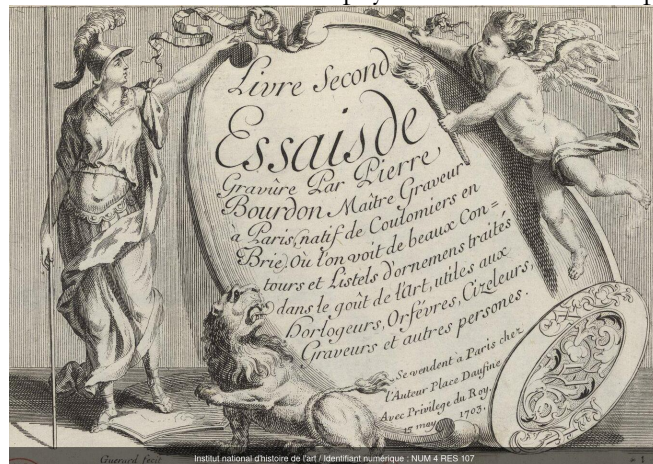 Livre Second
Essais de
Gravûre Par Pierre
Bourdon Maitre Graveur
à Paris, natif de Coulomiers en
Brie, Où l'on voit de beaux Con=
tours et Listels d'ornemens traités
dans le goût de l'art, utiles aux
Horlogeurs, Orfévres, Cizeleurs,
Graveurs et autres persones.
Se vendent a Paris chez
l'Auteur Place Daufine
Avec Privilege du Roy.
15 may 1703.
Guerard fecit
1
Institut national d'histoire de l'art / Identifiant numérique : NUM 4 RES 107